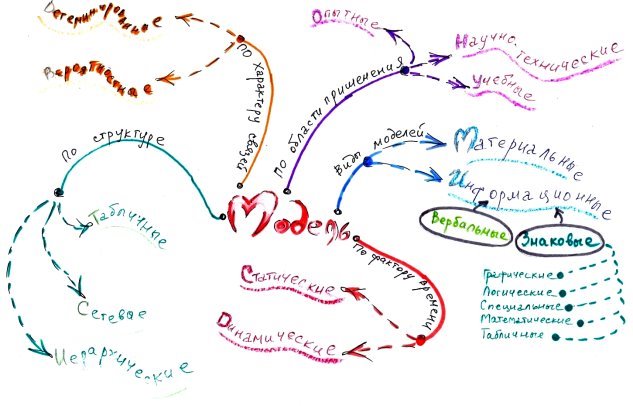 Детерминированные
Вероятностные
по характеру связей
Опытные
Научно-технические
Учебные
по области применения
по структуре
Табличные
Сетевое
Иерархические
виды моделей
Материальные
Информационные
Вербальные
Знаковые
Графические
Логические
Специальные
Математические
Табличные
Модель
по фактору времени
Статические
Динамические